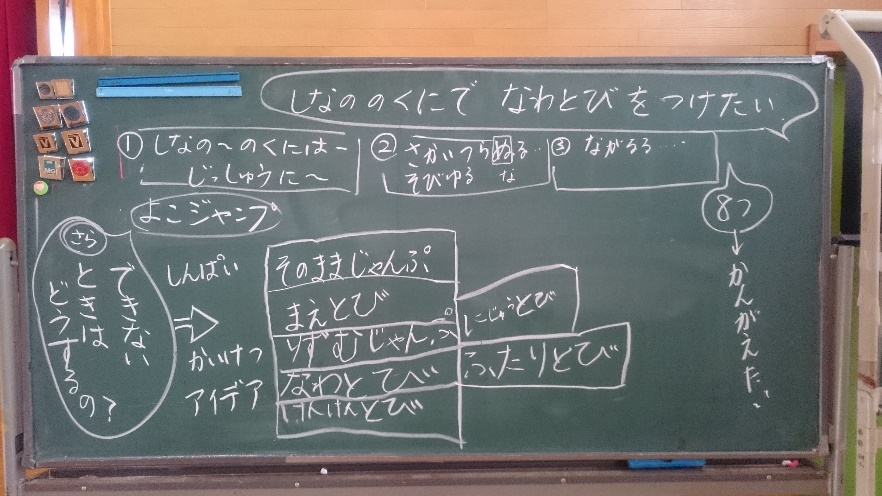 しなの のくにで なわとびを つけたい
① しなの〜のくにはー
じっしゅうに〜
② さかいつらぬる‥
そびゆる な
③ ながるる‥‥
8つ
↓かんがえた、、
よこジャンプ
さら
できない
ときは
どうするの?
しんぱい
⇒
かいけつ
アイデア
そのままじゃんぷ
まえとび
りずむじゃんぷ
なわとてび
けんけんとび
にじゅうとび
ふたりとび
V V
MG